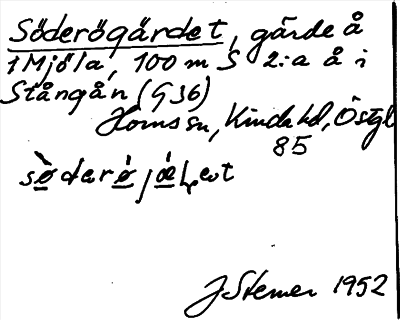 Söderögärdet, gärde å
1 Mjöla, 100 m S 2:a å i
Stångån (G 36)
Horns sn, Kinda hd, Östgl
85
J Stemer 1952